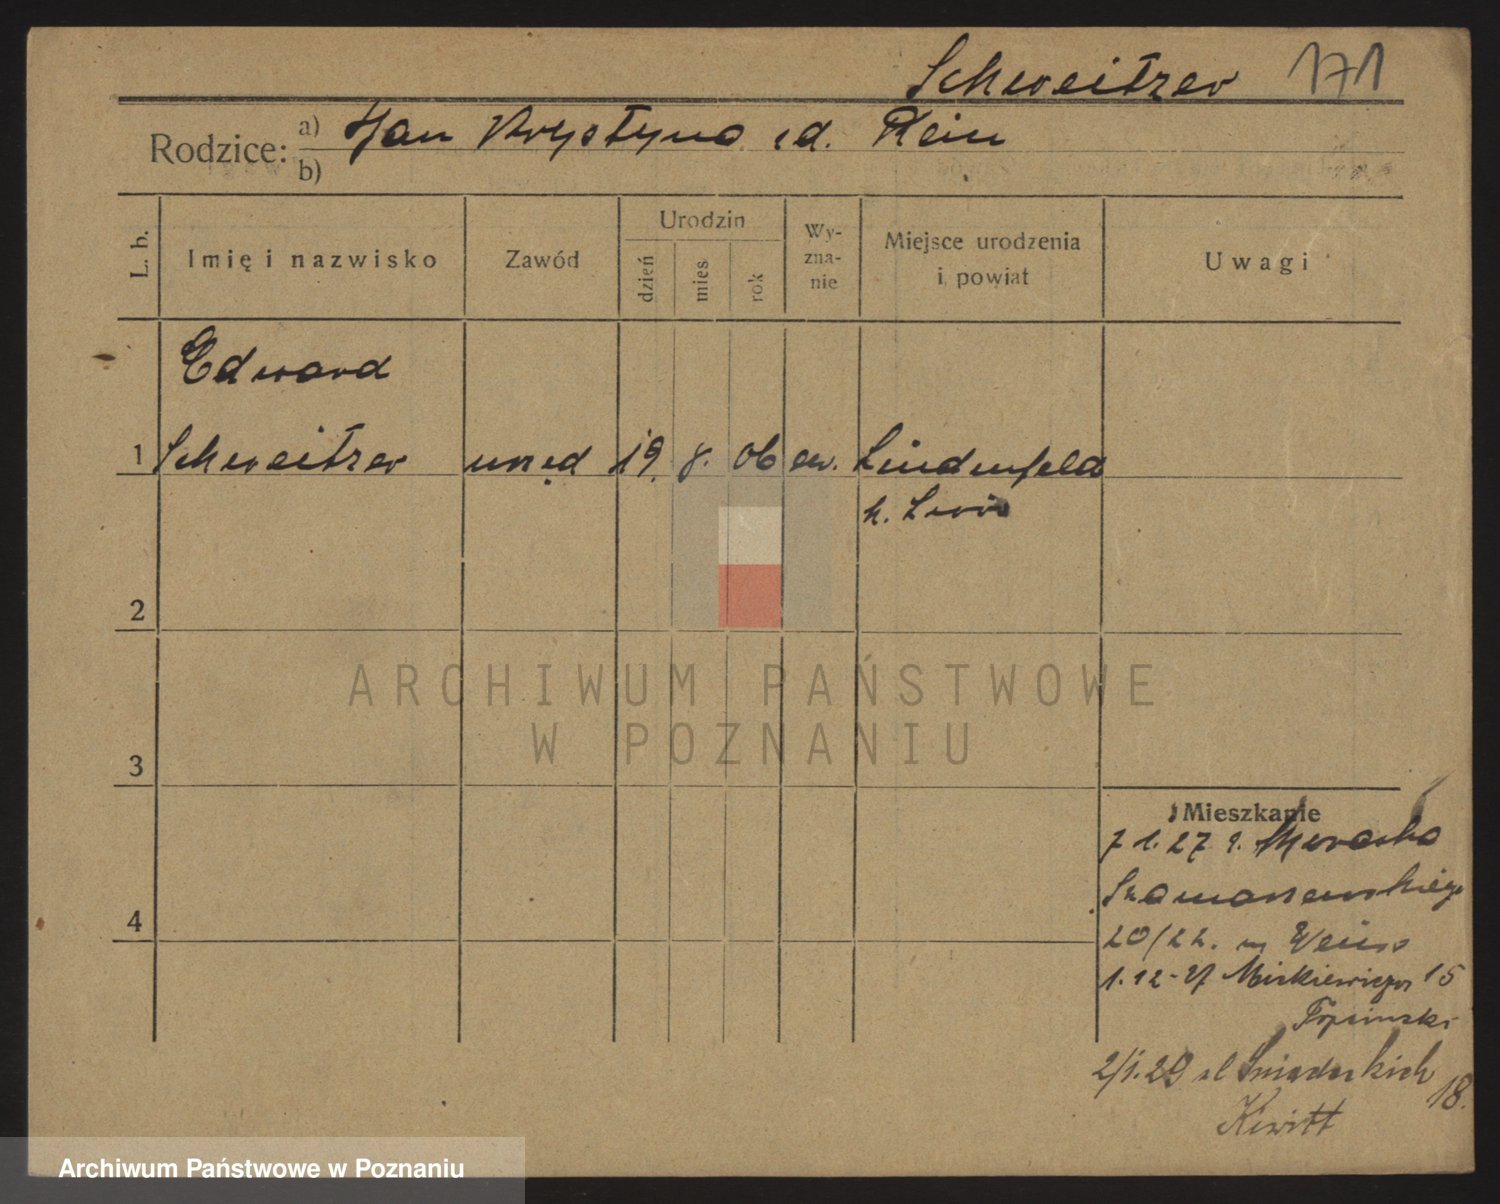 Schweitzer 171
Rodzice: a) Jan Krystyna zd. Rein
b)
L. b.
Imię i nazwisko
Zawód
Urodzin
dzień
mies
rok
Wy-
zna-
nie
Miejsce urodzenia
i powiat
Uwagi
Edward
1 Schweitzer urzęd 19. 8. 06 ew. Lindenfeld
k. Lwów
2
3
4
Mieszkanie
7 1. 27 z.
Szamarzewskiego
20/22. Weiss
1.12-27 Mickiewicza 15
2/1.29 ul Śniadeckich
18.
Kiwitt
ARCHIWUM PAŃSTWOWE
W POZNANIU
Archiwum Państwowe w Poznaniu